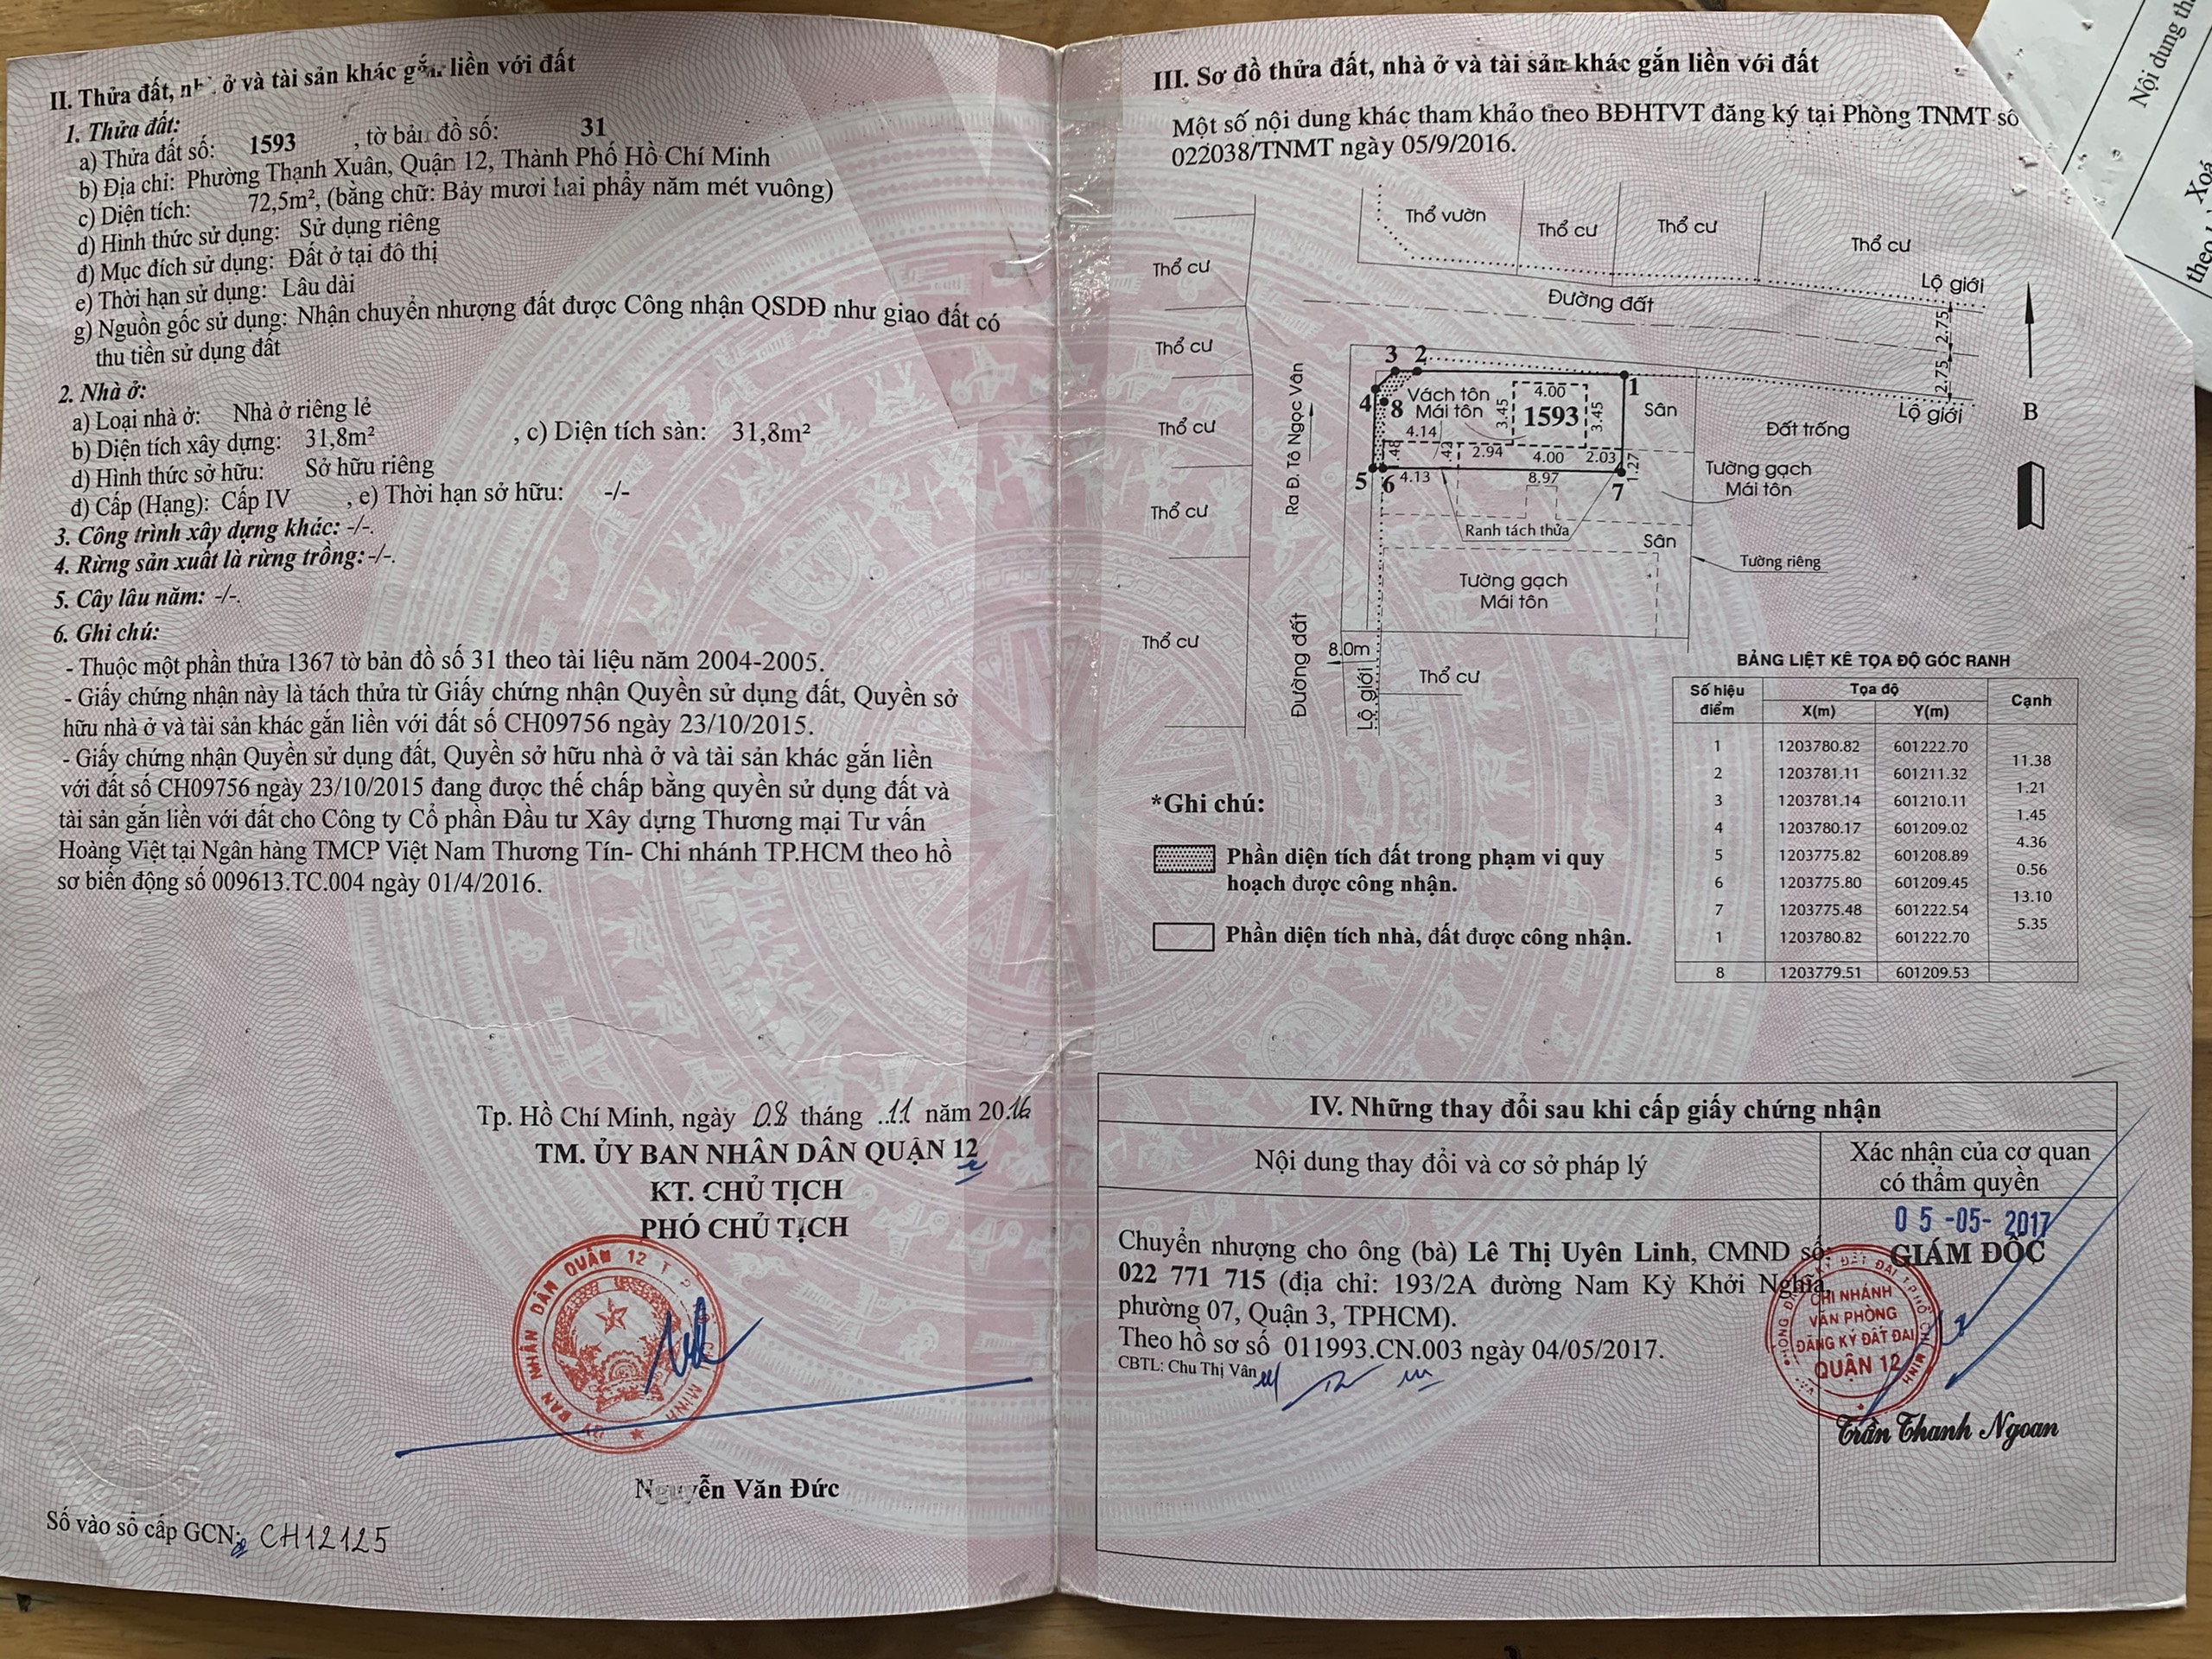 II. Thửa đất, nh ở và tài sản khác gắn liền với đất
1. Thửa đất:
a) Thửa đất số: 1593 , tờ bản đồ số: 31
b) Địa chỉ: Phường Thạnh Xuân, Quận 12, Thành Phố Hồ Chí Minh
c) Diện tích: 72,5m², (bằng chữ: Bảy mươi hai phẩy năm mét vuông)
d) Hình thức sử dụng: Sử dụng riêng
đ) Mục đích sử dụng: Đất ở tại đô thị
e) Thời hạn sử dụng: Lâu dài
g) Nguồn gốc sử dụng: Nhận chuyển nhượng đất được Công nhận QSDĐ như giao đất có
thu tiền sử dụng đất
2. Nhà ở:
a) Loại nhà ở: Nhà ở riêng lẻ
b) Diện tích xây dựng: 31,8m² , c) Diện tích sàn: 31,8m²
d) Hình thức sở hữu: Sở hữu riêng
đ) Cấp (Hạng): Cấp IV , e) Thời hạn sở hữu: -/-
3. Công trình xây dựng khác: -/-.
4. Rừng sản xuất là rừng trồng:-/-.
5. Cây lâu năm: -/-.
6. Ghi chú:
- Thuộc một phần thửa 1367 tờ bản đồ số 31 theo tài liệu năm 2004-2005.
- Giấy chứng nhận này là tách thửa từ Giấy chứng nhận Quyền sử dụng đất, Quyền sở
hữu nhà ở và tài sản khác gắn liền với đất số CH09756 ngày 23/10/2015.
- Giấy chứng nhận Quyền sử dụng đất, Quyền sở hữu nhà ở và tài sản khác gắn liền
với đất số CH09756 ngày 23/10/2015 đang được thế chấp bằng quyền sử dụng đất và
tài sản gắn liền với đất cho Công ty Cổ phần Đầu tư Xây dựng Thương mại Tư vấn
Hoàng Việt tại Ngân hàng TMCP Việt Nam Thương Tín- Chi nhánh TP.HCM theo hồ
sơ biến động số 009613.TC.004 ngày 01/4/2016.
Tp. Hồ Chí Minh, ngày 08 tháng 11 năm 2016
TM. ỦY BAN NHÂN DÂN QUẬN 12
KT. CHỦ TỊCH
PHÓ CHỦ TỊCH
ỦY BAN NHÂN DÂN QUẬN 12 T P HỒ CHÍ MINH
Nguyễn Văn Đức
Số vào sổ cấp GCN: CH12125
III. Sơ đồ thửa đất, nhà ở và tài sản khác gắn liền với đất
Một số nội dung khác tham khảo theo BĐHTVT đăng ký tại Phòng TNMT số
022038/TNMT ngày 05/9/2016.
Thổ vườn
Thổ cư
Thổ cư
Thổ cư
Thổ cư
Lộ giới
Đường đất
2.75
2.75
Lộ giới
B
Thổ cư
Thổ cư
Thổ cư
Thổ cư
Ra Đ. Tô Ngọc Vân
3 2 1
4 8
Vách tôn
Mái tôn
4.00
3.45
1593
3.45
Sân
Đất trống
4.14
2.94
4.00
2.03
1.27
5 6 4.13
8.97
7
Tường gạch
Mái tôn
Ranh tách thửa
Sân
Tường riêng
Tường gạch
Mái tôn
Đường đất
8.0m
Lộ giới
Thổ cư
BẢNG LIỆT KÊ TỌA ĐỘ GÓC RANH
Số hiệu điểm Tọa độ Cạnh
X(m) Y(m)
1 1203780.82 601222.70
11.38
2 1203781.11 601211.32
1.21
3 1203781.14 601210.11
1.45
4 1203780.17 601209.02
4.36
5 1203775.82 601208.89
0.56
6 1203775.80 601209.45
13.10
7 1203775.48 601222.54
5.35
1 1203780.82 601222.70
8 1203779.51 601209.53
*Ghi chú:
Phần diện tích đất trong phạm vi quy
hoạch được công nhận.
Phần diện tích nhà, đất được công nhận.
IV. Những thay đổi sau khi cấp giấy chứng nhận
Nội dung thay đổi và cơ sở pháp lý
Xác nhận của cơ quan
có thẩm quyền
Chuyển nhượng cho ông (bà) Lê Thị Uyên Linh, CMND số:
022 771 715 (địa chỉ: 193/2A đường Nam Kỳ Khởi Nghĩa,
phường 07, Quận 3, TPHCM).
Theo hồ sơ số 011993.CN.003 ngày 04/05/2017.
CBTL: Chu Thị Vân
05 -05- 2017
GIÁM ĐỐC
CHI NHÁNH
VĂN PHÒNG
ĐĂNG KÝ ĐẤT ĐAI
QUẬN 12
Trần Thanh Ngoan
Nội dung th
Xoá
theo